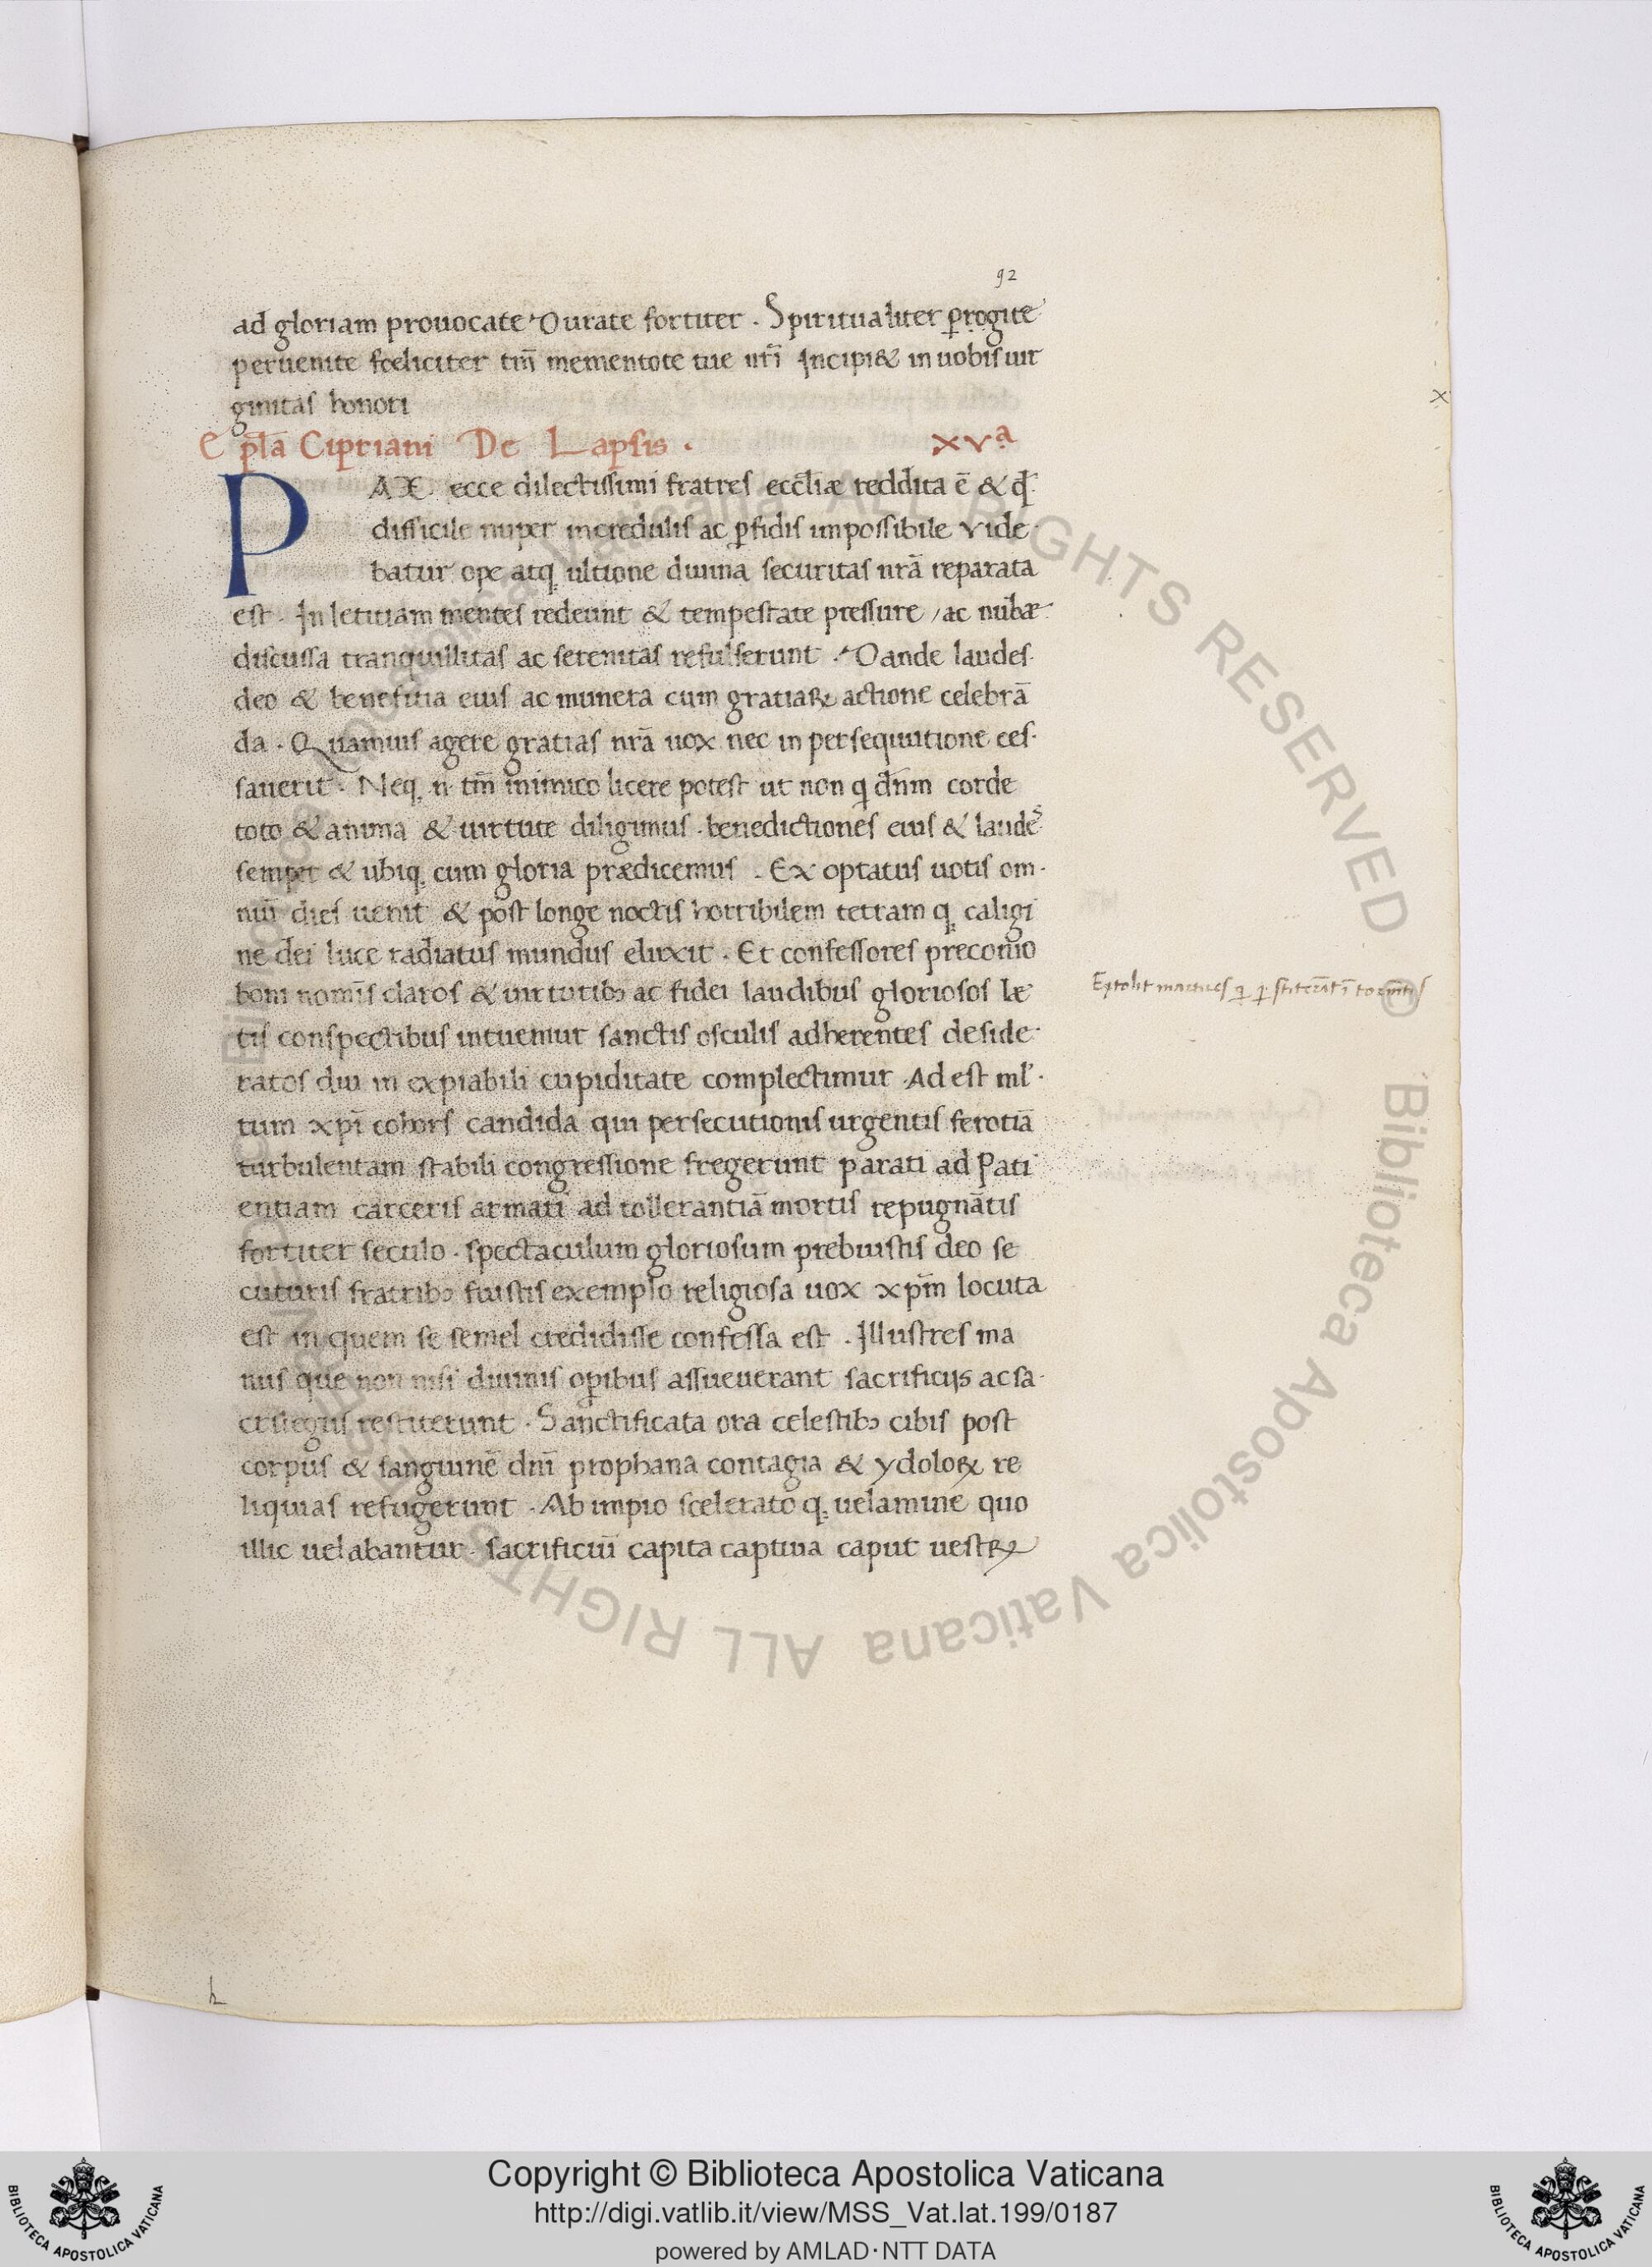 92
ad gloriam prouocate Durate fortiter . Spiritualiter ꝑrogite
peruenite fœliciter tm̄ mementote tue ur̄i Incipi& in uobis uir
ginitas honori
Epl̄a Cipriani De Lapsis . xvᵃ
PAX ecce dilectissimi fratres eccl̄iæ reddita ē & qđ
difficile nuper incredulis ac ꝑfidis impossibile vide
batur ope atq; ultione diuina securitas nr̄a reparata
est . In letitiam mentes redeunt & tempestate pressure / ac nubæ
discussa tranquillitas ac serenitas refulserunt . Dande laudes
deo & benefitia eius ac munera cum gratiaꝝ actione celebrā
da . Quamuis agere gratias nr̄a uox nec in persequutione ces
sauerit . Neq; n tm̄ inimico licere potest ut non q dn̄m corde
toto & anima & uirtute diligimus . benedictiones eius & laudes
semper & ubiq; cum gloria prædicemus . Ex optatus uotis om
niū dies uenit & post longe noctis horribilem tetram q; caligi
ne dei luce radiatus mundus eluxit . Et confessores preconio
boni nomīs claros & uirtutibꝫ ac fidei laudibus gloriosos læ
tis conspectibus intuemur sanctis osculis adherentes deside
ratos diu in expiabili cupiditate complectimur . Ad est ml̄
tum xp̄i cohors candida qui persecutionis urgentis ferotiā
turbulentam stabili congressione fregerunt parati ad Pati
entiam carceris armati ad tollerantiā mortis repugnātis
fortiter seculo . spectaculum gloriosum prebuistis deo se
cuturis fratribꝫ fuistis exemplo religiosa uox xp̄m locuta
est in quem se semel credidisse confessa est . Illustres ma
nus que non nisi diuinis oꝑibus assueuerant sacrificijs ac sa
crilegis restiterunt . Sanctificata ora celestibꝫ cibis post
corpus & sanguinē dn̄i prophana contagia & ydoloꝝ re
liquias refugerunt . Ab impio scelerato q; uelamine quo
illic uelabantur . sacrificiū capita captiua caput uestꝝ
Extolit martires q ꝑstiterūt ī torm̄tis
x
h
© Biblioteca Apostolica Vaticana ALL RIGHTS RESERVED
© Biblioteca Apostolica Vaticana ALL RIGHTS
Copyright © Biblioteca Apostolica Vaticana
http://digi.vatlib.it/view/MSS_Vat.lat.199/0187
powered by AMLAD·NTT DATA
BIBLIOTECA APOSTOLICA VATICANA
BIBLIOTECA APOSTOLICA VATICANA